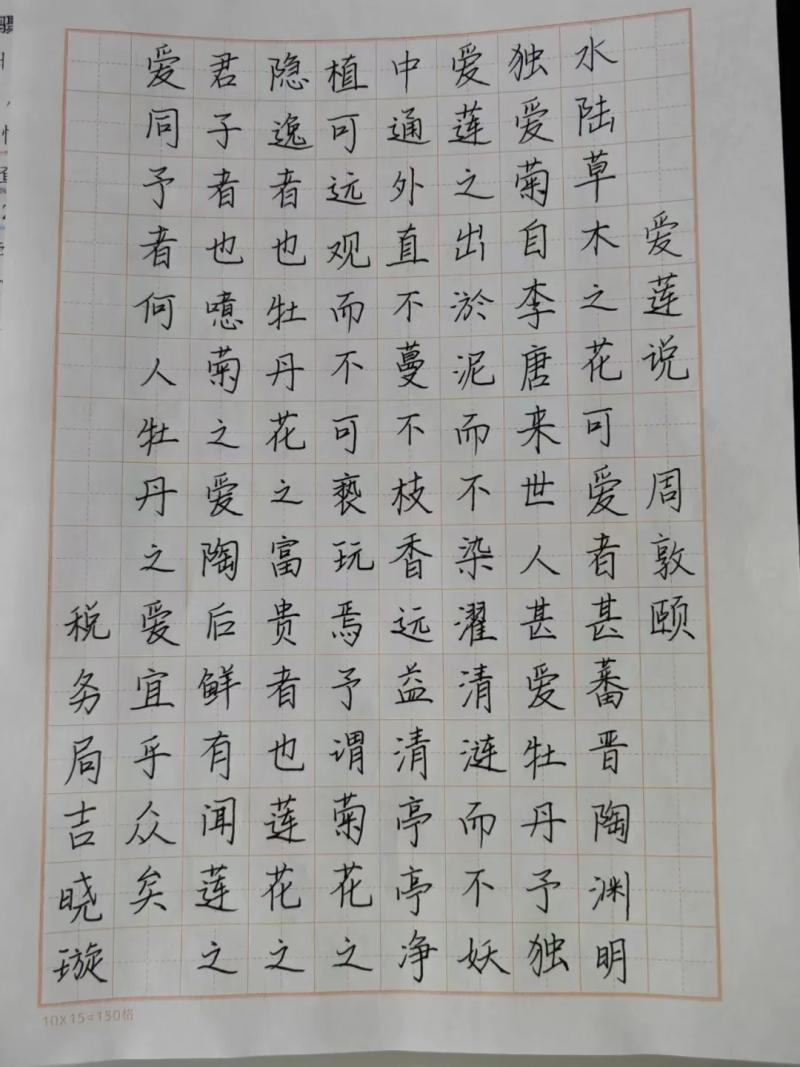 爱莲说 周敦颐
水陆草木之花可爱者甚蕃晋陶渊明
独爱菊自李唐来世人甚爱牡丹予独
爱莲之出淤泥而不染濯清涟而不妖
中通外直不蔓不枝香远益清亭亭净
植可远观而不可亵玩焉予谓菊花之
隐逸者也牡丹花之富贵者也莲花之
君子者也噫菊之爱陶后鲜有闻莲之
爱同予者何人牡丹之爱宜乎众矣
税务局吉晓璇
10X15=150格